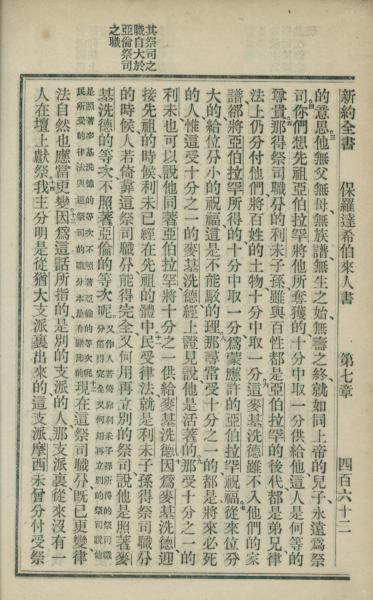 其祭司之
職自大於
亞倫祭司
之職
新約全書 保羅達希伯來人書 第七章 四百六十二
的意思他無父無母無族譜無生之始無壽之終就如同上帝的兒子永遠爲祭
司你們想先祖亞伯拉罕將他所奪獲的十分中取一分供給他這人是何等的
尊貴那得祭司職分的利未子孫雖與百姓都是亞伯拉罕的後代都是弟兄律
法上仍分付他們將百姓的土物十分中取一分這麥基洗德雖不入他們的家
譜卻將亞伯拉罕所得的十分中取一分爲蒙應許的亞伯拉罕祝福從來位分
大的給位分小的祝福這是不能駁的理那尋常受十分之一的都是將來必死
的人惟這受十分之一的麥基洗德經上證見說他是活著的那受十分之一的
利未也可以說他同著亞伯拉罕將十分之一供給麥基洗德因爲麥基洗德迎
接先祖的時候利未已經在先祖的體中民受律法就是利未子孫得祭司職分
的時候人若倚靠這祭司職分能得完全又何用再立別的祭司說他是照著麥
基洗德的等次不照著亞倫的等次呢
現在這祭司職分旣已更變律
法自然也應當更變因爲這話所指的是別的支派的人那支派裏從來沒有一
人在壇上獻祭我主分明是從猶大支派裏出來的這支派摩西未曾分付受祭